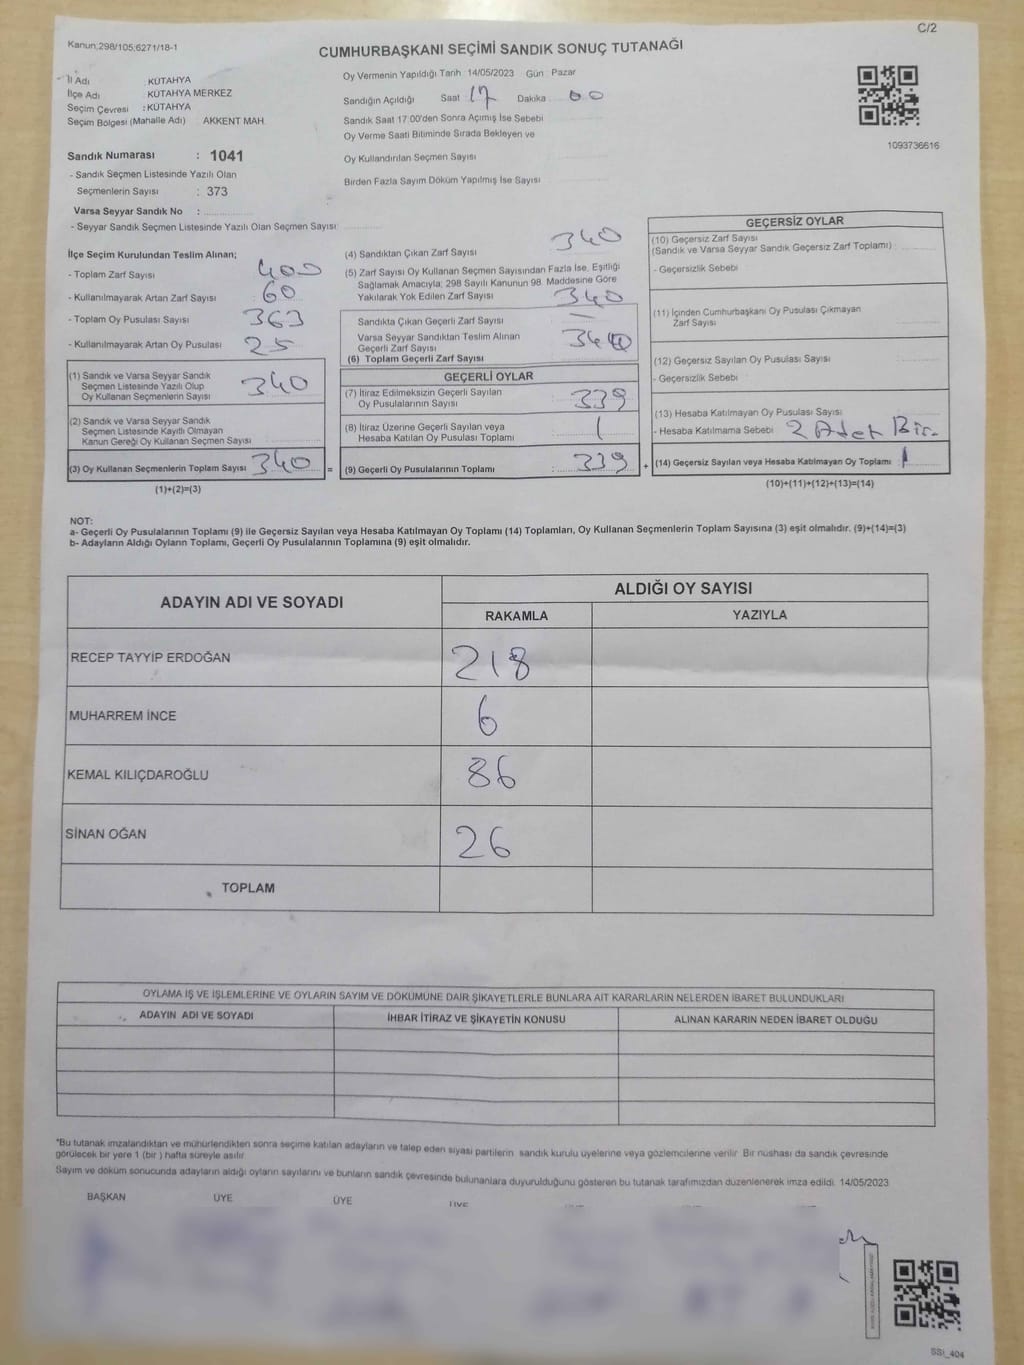 C/2
Kanun;298/105;6271/18-1
CUMHURBAŞKANI SEÇİMİ SANDIK SONUÇ TUTANAĞI
İl Adı KÜTAHYA
İlçe Adı KÜTAHYA MERKEZ
Seçim Çevresi : KÜTAHYA
Seçim Bölgesi (Mahalle Adı) AKKENT MAH.
Sandık Numarası : 1041
- Sandık Seçmen Listesinde Yazılı Olan
Seçmenlerin Sayısı : 373
Varsa Seyyar Sandık No :
- Seyyar Sandık Seçmen Listesinde Yazılı Olan Seçmen Sayısı
Oy Vermenin Yapıldığı Tarih 14/05/2023 Gün Pazar
Sandığın Açıldığı Saat 17 Dakika 00
Sandık Saat 17:00'den Sonra Açımış İse Sebebi
Oy Verme Saati Bitiminde Sırada Bekleyen ve
Oy Kullandırılan Seçmen Sayısı
Birden Fazla Sayım Döküm Yapılmış İse Sayısı
1093736616
İlçe Seçim Kurulundan Teslim Alınan;
- Toplam Zarf Sayısı 400
- Kullanılmayarak Artan Zarf Sayısı 60
- Toplam Oy Pusulası Sayısı 363
- Kullanılmayarak Artan Oy Pusulası 25
(1) Sandık ve Varsa Seyyar Sandık
Seçmen Listesinde Yazılı Olup
Oy Kullanan Seçmenlerin Sayısı 340
(2) Sandık ve Varsa Seyyar Sandık
Seçmen Listesinde Kayıtlı Olmayan
Kanun Gereği Oy Kullanan Seçmen Sayısı
(3) Oy Kullanan Seçmenlerin Toplam Sayısı 340 =
(1)+(2)=(3)
(4) Sandıktan Çıkan Zarf Sayısı 340
(5) Zarf Sayısı Oy Kullanan Seçmen Sayısından Fazla İse, Eşitliği
Sağlamak Amacıyla; 298 Sayılı Kanunun 98. Maddesine Göre
Yakılarak Yok Edilen Zarf Sayısı
340
Sandıkta Çıkan Geçerli Zarf Sayısı –
Varsa Seyyar Sandıktan Teslim Alınan
Geçerli Zarf Sayısı
(6) Toplam Geçerli Zarf Sayısı
GEÇERLİ OYLAR
(7) İtiraz Edilmeksizin Geçerli Sayılan
Oy Pusulalarının Sayısı 339
(8) İtiraz Üzerine Geçerli Sayılan veya
Hesaba Katılan Oy Pusulası Toplamı 1
(9) Geçerli Oy Pusulalarının Toplamı : 339 +
GEÇERSİZ OYLAR
(10) Geçersiz Zarf Sayısı
(Sandık ve Varsa Seyyar Sandık Geçersiz Zarf Toplamı)
- Geçersizlik Sebebi
(11) İçinden Cumhurbaşkanı Oy Pusulası Çıkmayan
Zarf Sayısı
(12) Geçersiz Sayılan Oy Pusulası Sayısı
- Geçersizlik Sebebi
(13) Hesaba Katılmayan Oy Pusulası Sayısı
- Hesaba Katılmama Sebebi 2 Adet Bir.
(14) Geçersiz Sayılan veya Hesaba Katılmayan Oy Toplamı 1
(10)+(11)+(12)+(13)=(14)
NOT:
a- Geçerli Oy Pusulalarının Toplamı (9) ile Geçersiz Sayılan veya Hesaba Katılmayan Oy Toplamı (14) Toplamları, Oy Kullanan Seçmenlerin Toplam Sayısına (3) eşit olmalıdır. (9)+(14)=(3)
b- Adayların Aldığı Oyların Toplamı, Geçerli Oy Pusulalarının Toplamına (9) eşit olmalıdır.
ADAYIN ADI VE SOYADI
ALDIĞI OY SAYISI
RAKAMLA YAZIYLA
RECEP TAYYİP ERDOĞAN 218
MUHARREM İNCE 6
KEMAL KILIÇDAROĞLU 86
SİNAN OĞAN 26
TOPLAM
OYLAMA İŞ VE İŞLEMLERİNE VE OYLARIN SAYIM VE DÖKÜMÜNE DAİR ŞİKAYETLERLE BUNLARA AİT KARARLARIN NELERDEN İBARET BULUNDUKLARI
ADAYIN ADI VE SOYADI İHBAR İTİRAZ VE ŞİKAYETİN KONUSU ALINAN KARARIN NEDEN İBARET OLDUĞU
*Bu tutanak imzalandıktan ve mühürlendikten sonra seçime katılan adayların ve talep eden siyasi partilerin sandık kurulu üyelerine veya gözlemcilerine verilir. Bir nüshası da sandık çevresinde
görülecek bir yere 1 (bir ) hafta süreyle asılır.
Sayım ve döküm sonucunda adayların aldığı oyların sayılarını ve bunların sandık çevresinde bulunanlara duyurulduğunu gösteren bu tutanak tarafımızdan düzenlenerek imza edildi. 14/05/2023
BAŞKAN ÜYE ÜYE
SSI_404